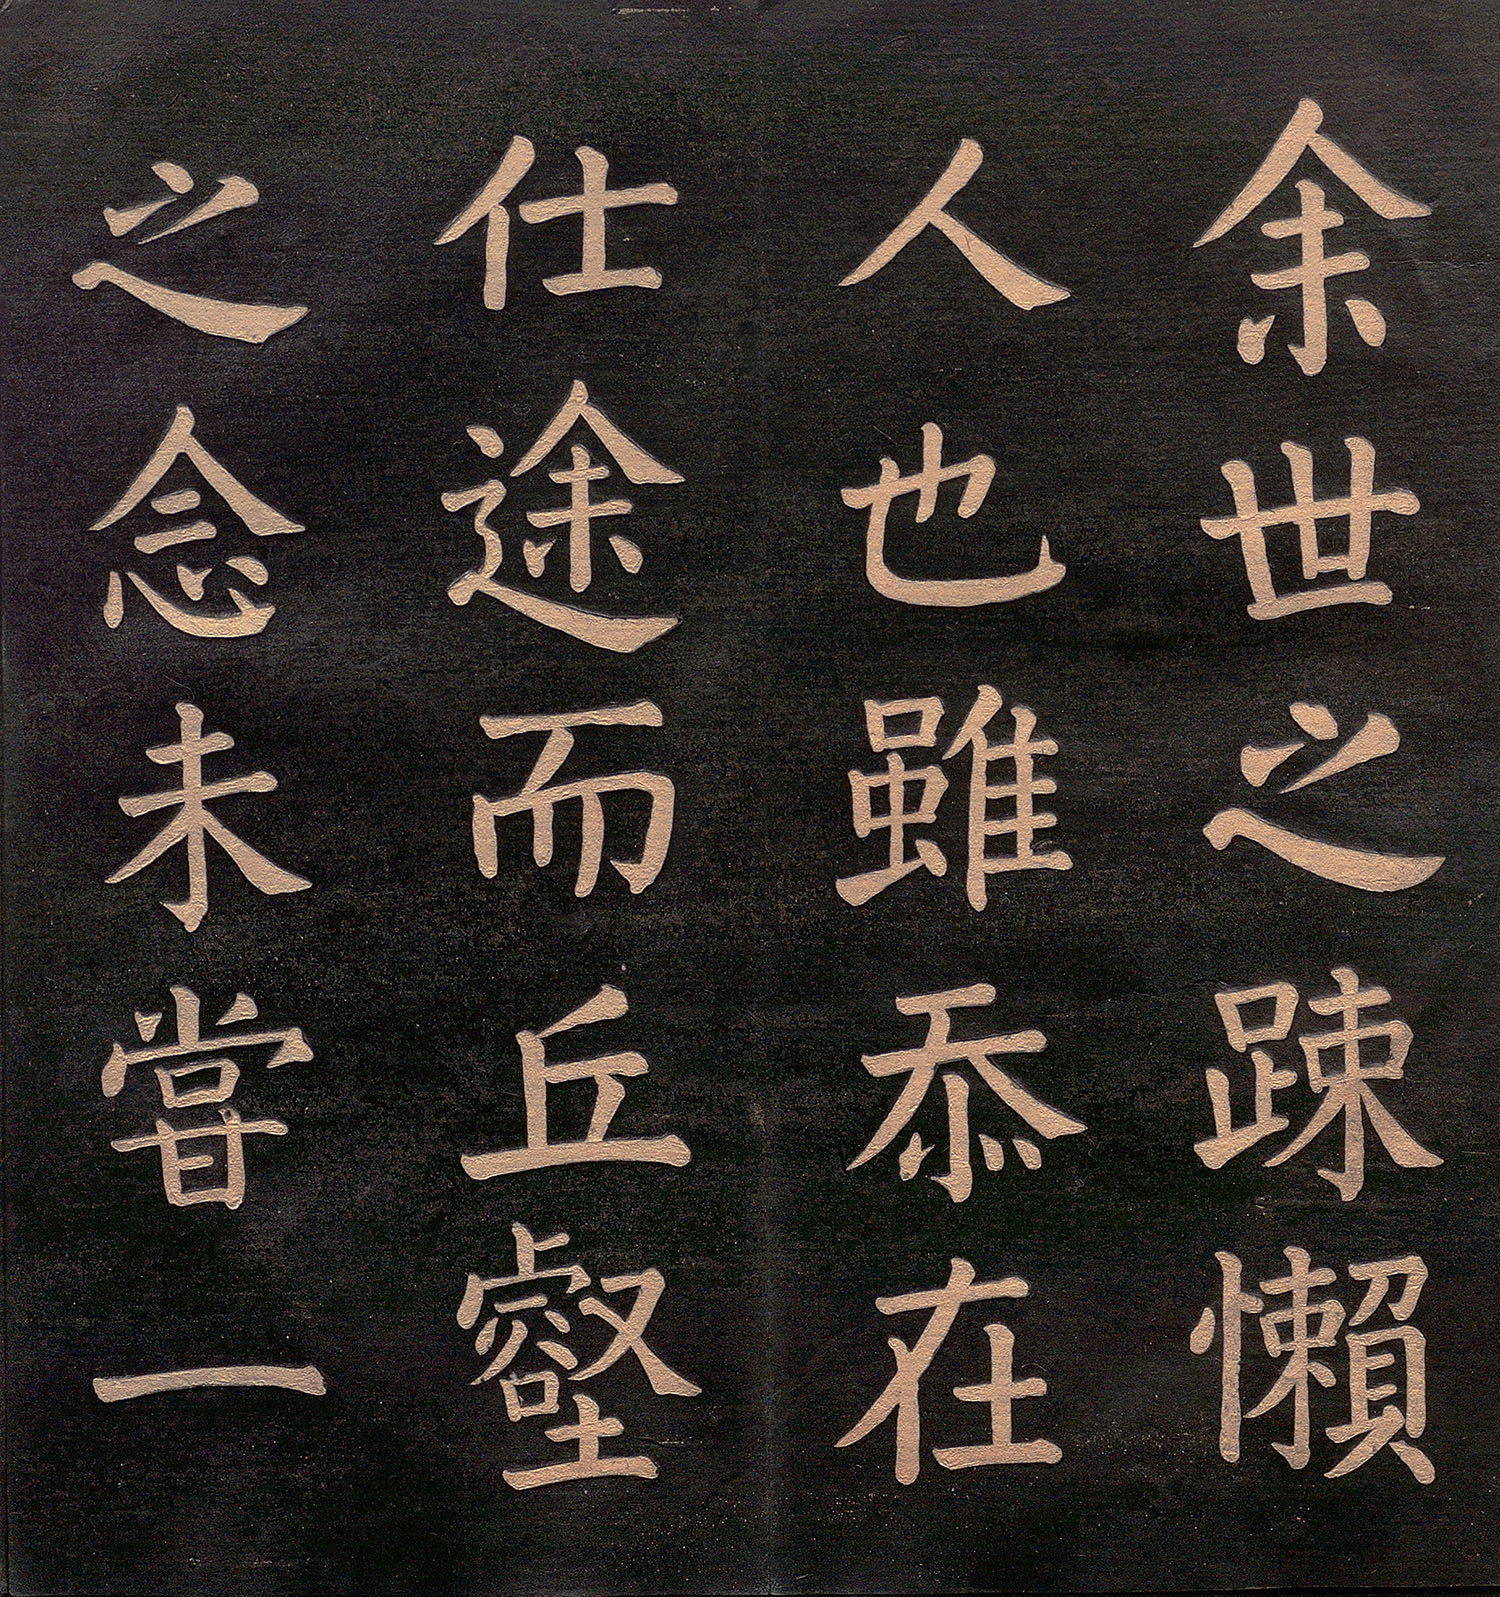 余世之踈懶
人也雖忝在
仕途而丘壑
之念未甞一